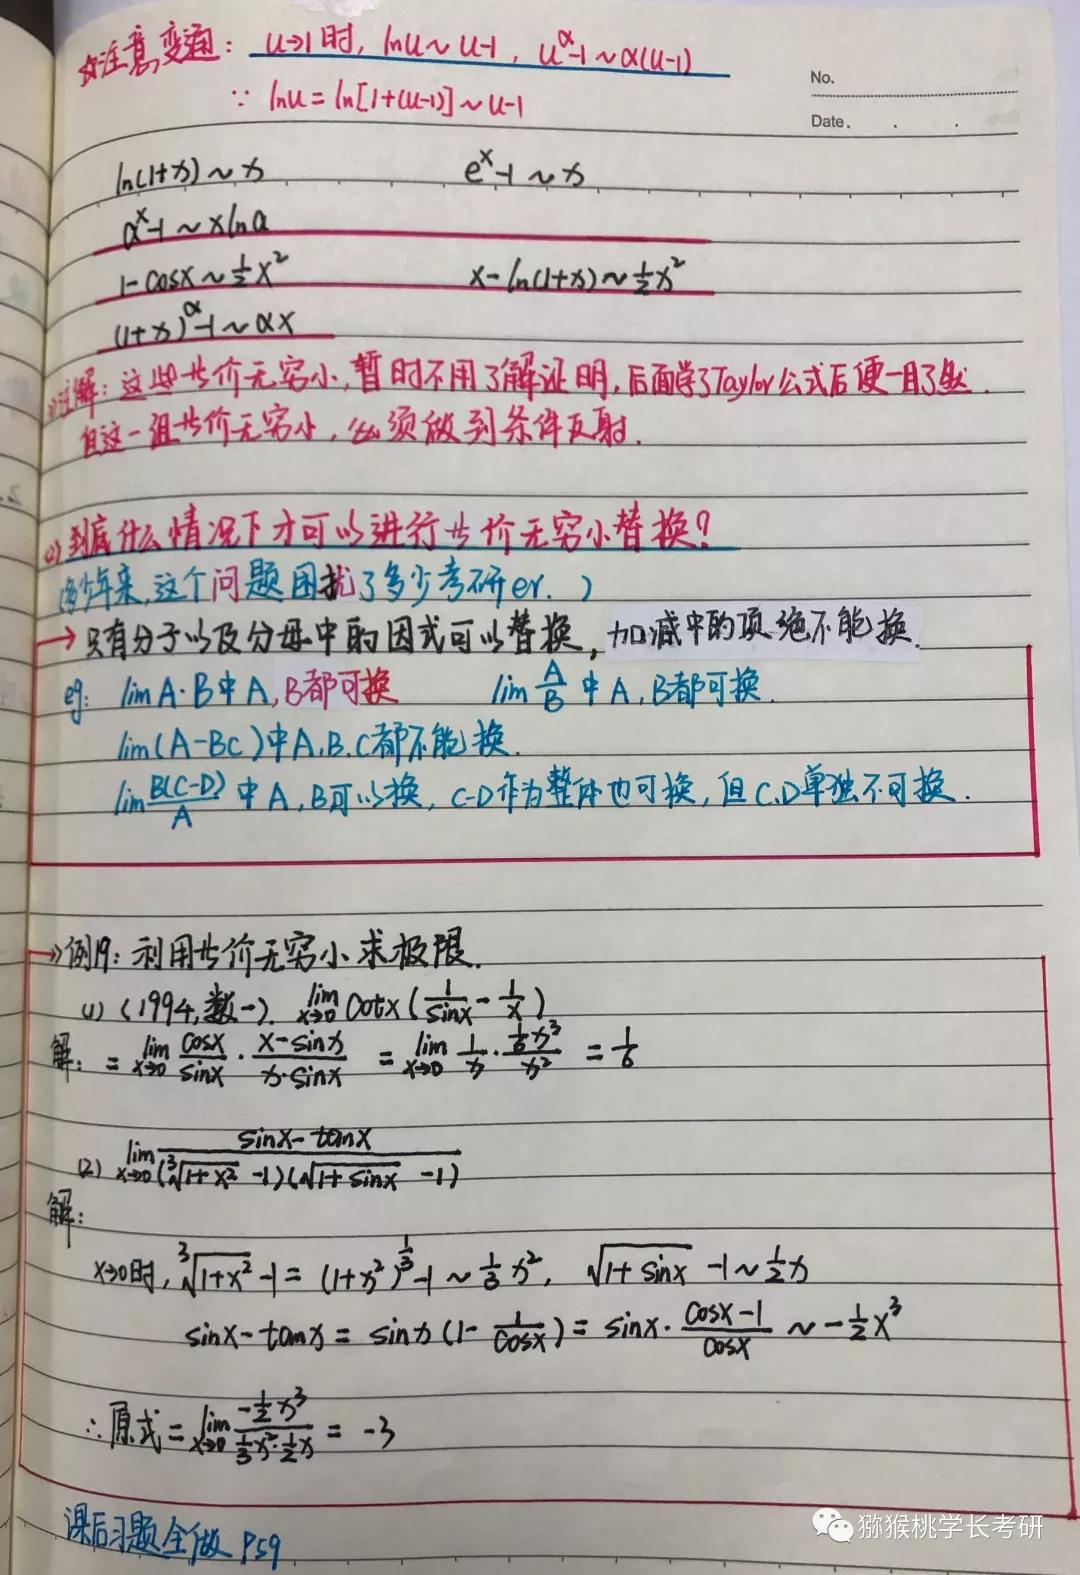 ☆注意变通：u→1时, lnu~u-1, u^α-1~α(u-1)
No.
∵ lnu=ln[1+(u-1)]~u-1
Date. . .
ln(1+x)~x e^x-1~x
a^x-1~xlna
1-cosx~1/2x^2 x-ln(1+x)~1/2x^2
(1+x)^α-1~αx
注解：这些等价无穷小,暂时不用了解证明,后面学了Taylor公式后便一目了然.
但这一组等价无穷小,必须做到条件反射.
(2)到底什么情况下才可以进行等价无穷小替换?
(多少年来,这个问题困扰了多少考研er.)
→只有分子以及分母中的因式可以替换,加减中的项绝不能换.
eg: limA·B中A,B都可换 lim A/B 中A,B都可换.
lim(A-BC)中A.B.C都不能换.
lim B(C-D)/A 中A,B可以换, C-D作为整体也可换,但C.D单独不可换.
→例19：利用等价无穷小求极限.
(1)(1994,数一). lim x→0 cotx(1/sinx-1/x)
解: =lim x→0 cosx/sinx · x-sinx/x·sinx = lim x→0 1/x · 1/6x^3/x^2 = 1/6
(2) lim x→0 sinx-tanx/(∛1+x^2 -1)(√1+sinx -1)
解:
x→0时, ∛1+x^2 -1=(1+x^2)^1/3-1~1/3x^2, √1+sinx -1~1/2x
sinx-tanx=sinx(1-1/cosx)=sinx·cosx-1/cosx ~ -1/2x^3
∴原式=lim x→0 -1/2x^3/1/3x^2·1/2x = -3
课后习题全做 P59
猕猴桃学长考研